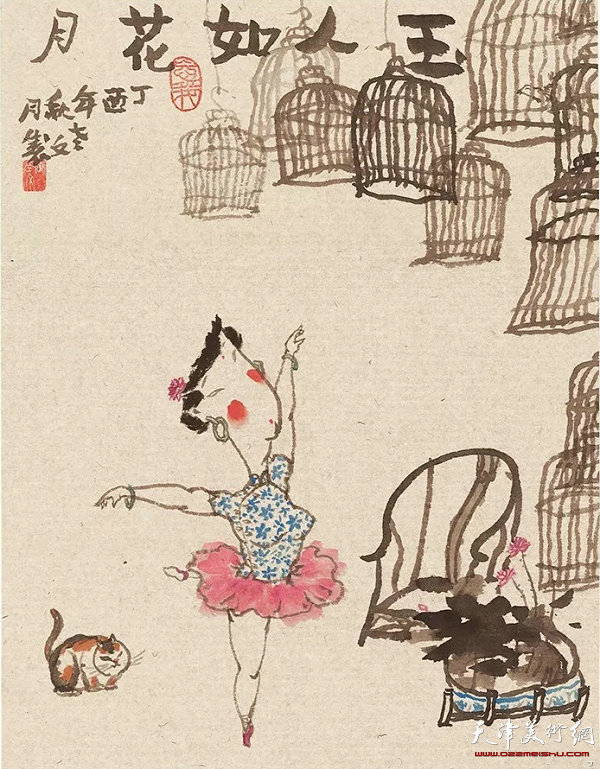 玉人如花月
丁酉年秋月
製
天津美術網
www.022meishu.com